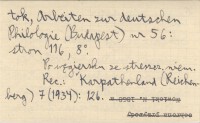 tok, Arbeiten zur deutschen
Philologie (Budapest) nr 56:
stron 116, 8°.
Po węgiersku ze streszcz. niem.
Rec.: Karpathenland (Reichen-
berg) 7 (1934): 126.